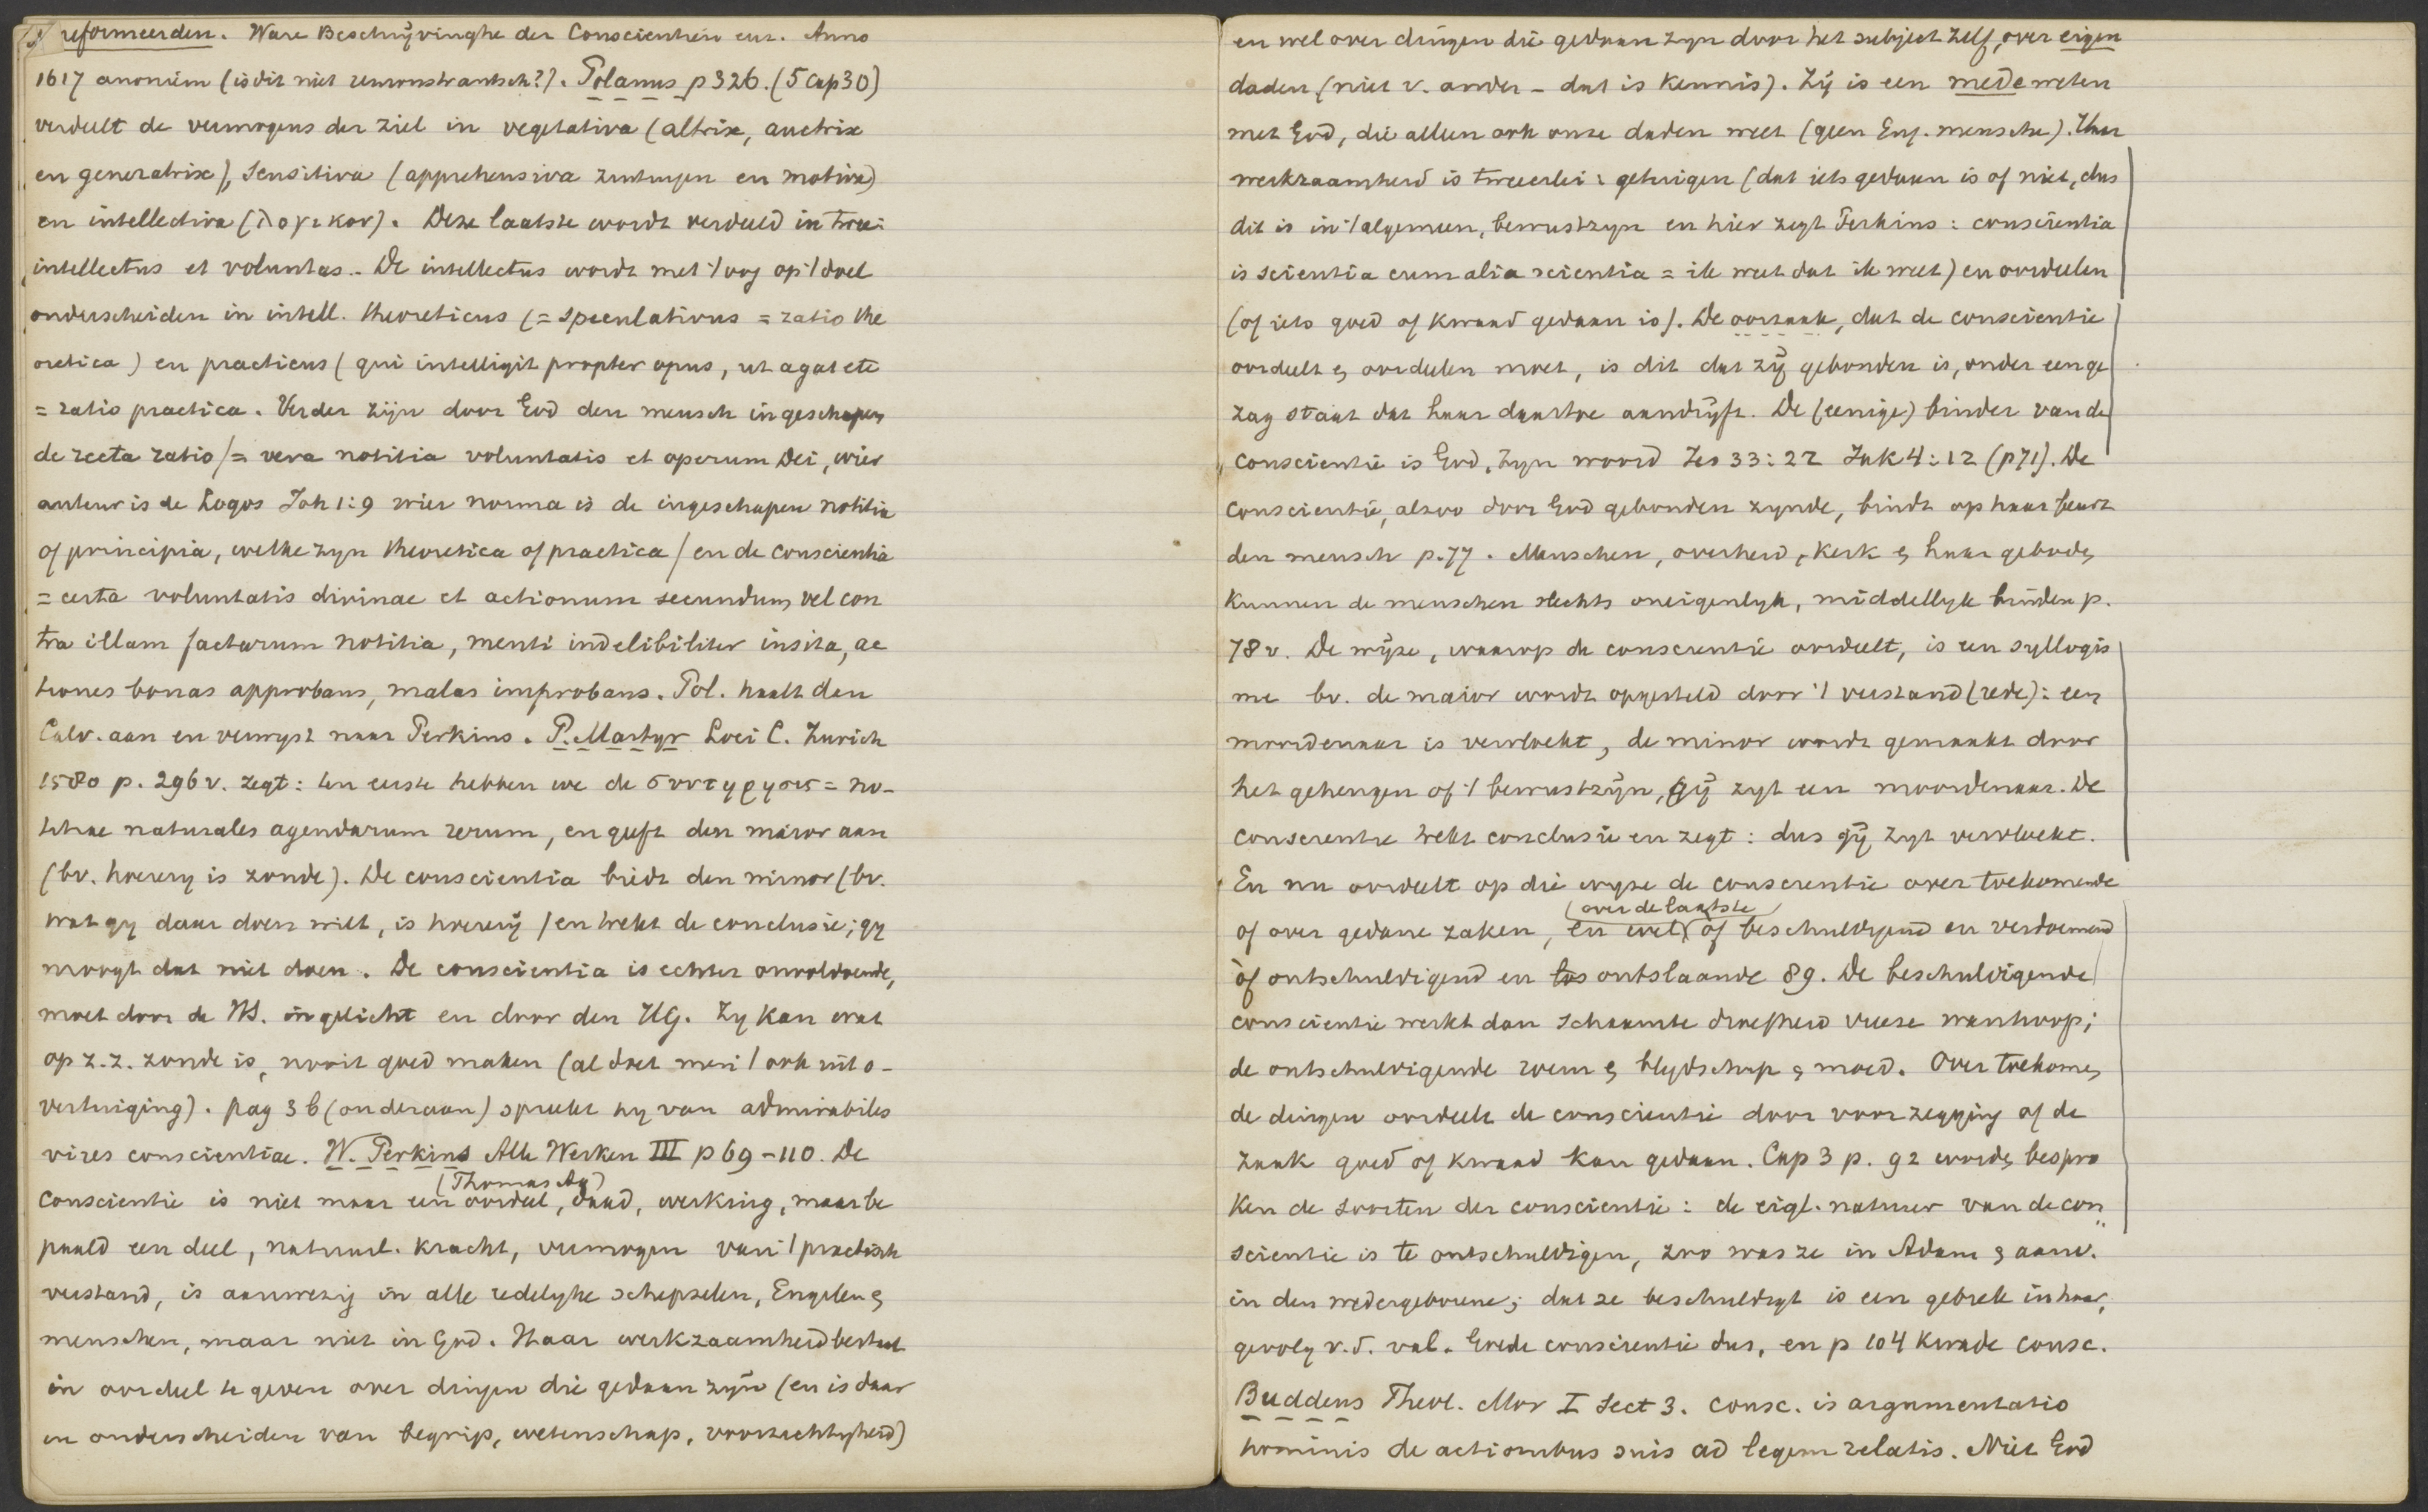 reformeerden. Ware Beschrijvinghe der Conscientien enz. Anno
1617 anoniem (is dit niet remonstrantsch?). Polanus p 326. (5 cap 30)
verdeelt de vermogens der ziel in vegetativa (altrix, auctrix
en generatrix), sensitiva (apprehensiva zintuigen en motiva)
en intellectiva (λογικον). Deze laatste wordt verdeeld in twee:
intellectus et voluntas. De intellectus wordt met 't oog op 't doel
onderscheiden in intell. theoreticus (= speculativus = ratio the
oretica) en practicus (qui intelligit propter opus, ut agat etc
= ratio practica. Verder zijn door God den mensch ingeschapen
de recta ratio (= vera notitia voluntatis et operum Dei, wier
auteur is de Logos Joh 1:9 wier norma is de ingeschapen notitia
of principia, welke zyn theoretica of practica) en de conscientia
= certa voluntatis divinae et actionum secundum vel con
tra illam factarum notitia, menti indelibiliter insita, ac
tiones bonas approbans, malas improbans. Pol. haalt den
Calv. aan en verwyst naar Perkins. P. Martyr Loci C. Zurich
1580 p. 296 v. zegt: ten eerste hebben we de συντηρησις = no-
titiae naturales agendarum rerum, en geeft den maior aan
(bv. hoerery is zonde). De conscientia biedt den minor (bv.
wat gy daar doen wilt, is hoererij) en trekt de conclusie; gy
moogt dat niet doen. De conscientia is echter onvoldoende,
moet door de HS. ingelicht en door den HG. Zy kan wat
op z.z. zonde is, nooit goed maken (al doet men 't ook uit o-
vertuiging). pag 3 b (onderaan) spreekt hy van admirabiles
vires conscientiae. W. Perkins Alle Werken III p 69-110. De
(Thomas Aq)
conscientie is niet maar een oordeel, daad, werking, maar be
paald een deel, natuurl. kracht, vermogen van 't practisch
verstand, is aanwezig in alle redelyke schepselen, Engelen &
menschen, maar niet in God. Haar werkzaamheid bestaat
in oordeel te geven over dingen die gedaan zyn (en is daar
in onderscheiden van begrip, wetenschap, voorzachtigheid)
en wel over dingen die gedaan zyn door het subject zelf, over eigen
daden (niet v. ander - dat is kennis). Zij is een medeweten
met God, die alleen ook onze daden weet (geen Eng. mensche). Haar
werkzaamheid is tweeerlei: getuigen (dat iets gedaan is of niet, dus
dit is in 't algemeen, bewustzyn en hier zegt Perkins: conscientia
is scientia cum alia scientia = ik weet dat ik weet) en oordeelen
(of iets goed of kwaad gedaan is). De oorzaak, dat de conscientie
oordeelt & oordeelen moet, is dit dat zij gebonden is, onder een ge
zag staat dat haar daartoe aandrijft. De (eenige) binder van de
conscientie is God, zyn woord Jes 33:22 Jak 4:12 (p 71). De
conscientie, alzoo door God gebonden zynde, bindt op haar beurt
den mensch p. 77. Menschen, overheid, kerk & haar geboden
kunnen de menschen slechts oneigenlyk, middellyk binden p.
78 v. De wijze, waarop de conscientie oordeelt, is een syllogis
me bv. de maior wordt opgesteld door 't verstand (rede): een
moordenaar is vervloekt, de minor wordt gemaakt door
het geheugen of 't bewustzijn, gij zyt een moordenaar. De
conscientie trekt conclusie en zegt: dus gij zyt vervloekt.
En nu oordeelt op die wyze de conscientie over toekomende
(over de laatste)
of over gedane zaken, en wel of beschuldigend en verdoemend
òf ontschuldigend en los ontslaande 89. De beschuldigende
conscientie werkt dan schaamte droefheid vreese wanhoop;
de ontschuldigende roem & blydschap & moed. Over toekomen
de dingen oordeelt de conscientie door voorzegging of de
zaak goed of kwaad kan gedaan. Cap 3 p. 92 worden bespro
ken de soorten der conscientie: de eigl. natuur van de con
scientie is te ontschuldigen, zoo was ze in Adam & aanv.
in den wedergeborene; dat ze beschuldigt is een gebrek in haar,
gevolg v. d. val. Goede conscientie dus, en p 104 kwade consc.
Buddeus Theol. Mor I Sect 3. consc. is argumentatio
hominis de actionibus suis ad legem relatis. Niet God